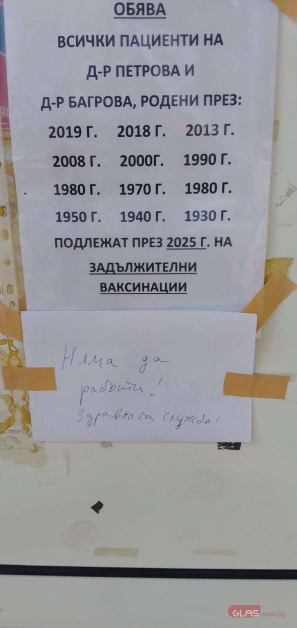 ОБЯВА
ВСИЧКИ ПАЦИЕНТИ НА
Д-Р ПЕТРОВА И
Д-Р БАГРОВА, РОДЕНИ ПРЕЗ:
2019 Г. 2018 Г. 2013 Г.
2008 Г. 2000Г. 1990 Г.
1980 Г. 1970 Г. 1980 Г.
1950 Г. 1940 Г. 1930 Г.
ПОДЛЕЖАТ ПРЕЗ 2025 Г. НА
ЗАДЪЛЖИТЕЛНИ
ВАКСИНАЦИИ
Няма да
работи!
Здравната служба!
GLASnews.bg